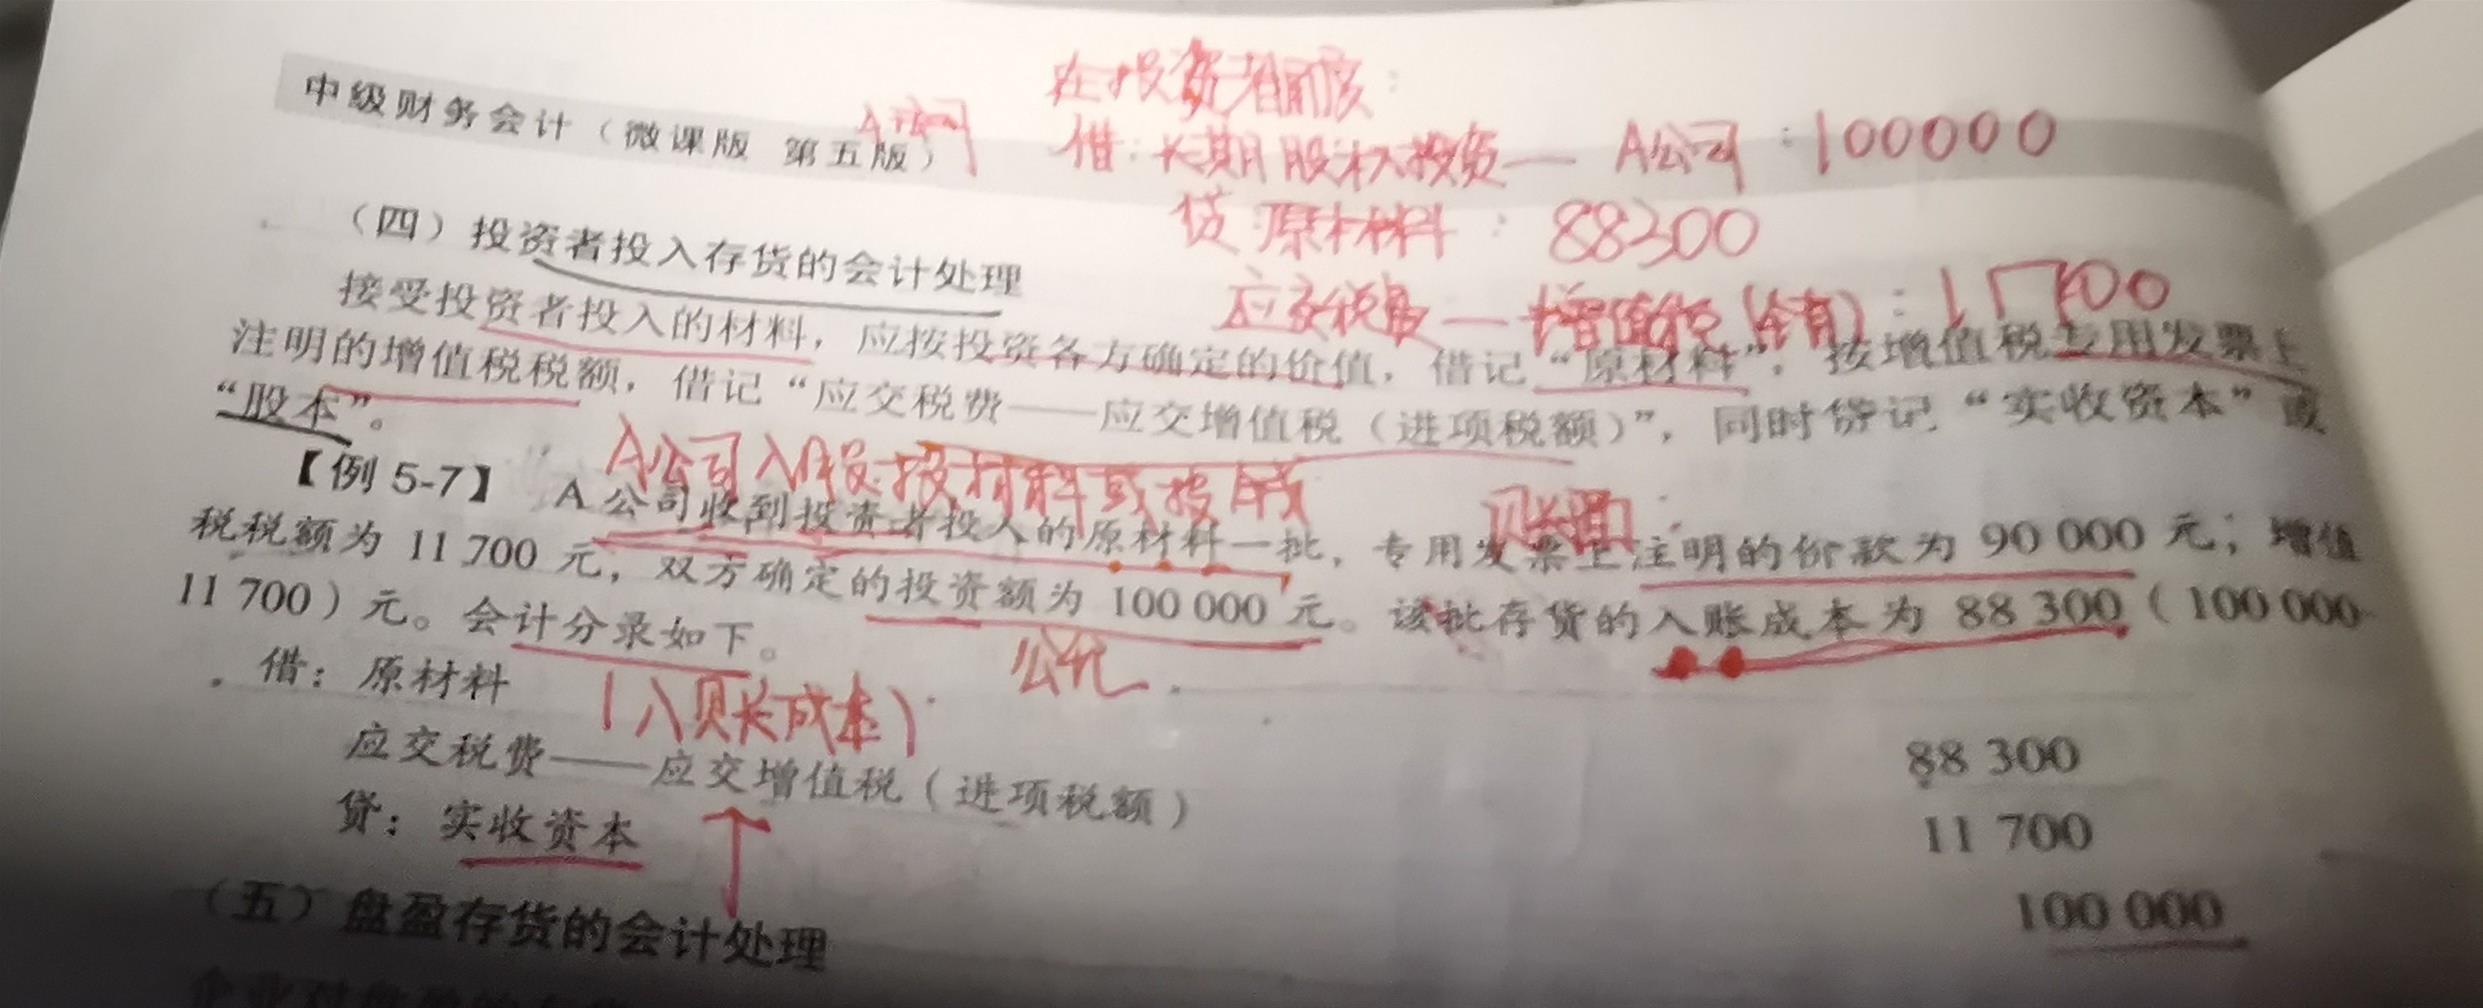 在投资者角度：
中级财务会计（微课版 第五版）
A公司
借：长期股权投资— A公司：100000
贷：原材料：88300
（四）投资者投入存货的会计处理
应交税费—增值税（ ）：11700
接受投资者投入的材料，应按投资各方确定的价值，借记“原材料”，按增值税专用发票上
注明的增值税税额，借记“应交税费——应交增值税（进项税额）”，同时贷记“实收资本”或
“股本”。
A公司入股：投材料或投钱
【例 5-7】 A 公司收到投资者投入的原材料一批，专用发票上注明的价款为 90 000 元；增值
税税额为 11 700 元，双方确定的投资额为 100 000 元。该批存货的入账成本为 88 300（100 000-
11 700）元。会计分录如下。
公允
借：原材料 88 300
（入账成本）
应交税费——应交增值税（进项税额） 11 700
贷：实收资本 100 000
（五）盘盈存货的会计处理